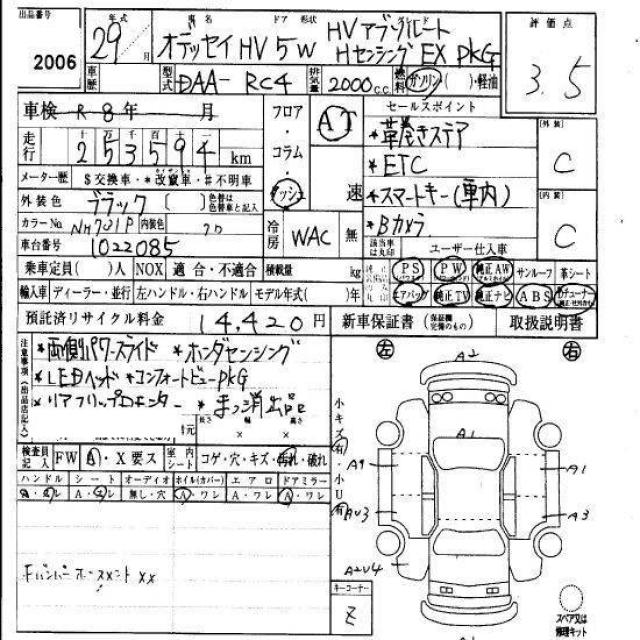 出品番号
2006
年式 29 年 / 月
車名 オデッセイHV 5W
ドア 形状 HVアブソルート Hセンシング EX PKG
評価点 3.5
車歴
型式 DAA- RC4
排気量 2000 c.c.
燃料 ガソリン ( )・軽油
車検 R 8年 月
走行 十 万 千 百 十 1253594 km
メーター歴 $交換車・*改竄車・#不明車
外装色 ブラック [ ] 色替は色替車と記入
カラーNo. NH731P 内装色
車台番号 1022085
フロア・コラム・ダッシュ
AT 速
冷房 WAC 無
セールスポイント
*革巻きステア
*ETC
*スマートキー(車内)
*Bカメラ
[外装] C
[内装] C
該当車は丸印 ユーザー仕入車
乗車定員( )人 NOX 適合・不適合 積載量 kg
PS PW 純正AW サンルーフ 革シート
輸入車 ディーラー・並行 左ハンドル・右ハンドル モデル年式( )年
エアバッグ 純正TV 純正ナビ ABS Dチューナー
預託済リサイクル料金 14,420円
新車保証書 (保証書/記録簿完備のもの) 取扱説明書
注意事項(出品店記入)
*両側パワースライド *ホンダセンシング
*LEDヘッド *コンフォートビューPKG
*リアフリップDモニター *まっ消出品
長さ × 幅 × 高さ
左 右
A2
小キズ有・小U有
A1
A9 A1
AU3 A3
A2U4
検査員記入 FW A・X要ス 室内シート コゲ・穴・キズ・汚れ・破れ
ハンドル シート オーディオ ホイル(カバー) エアロ ドアミラー
A・ワレ A・ワレ 無し・穴 A・ワレ A・ワレ A・ワレ
Fバンパー ××
キーコーナー
Z
スペア又は修理キット
A1